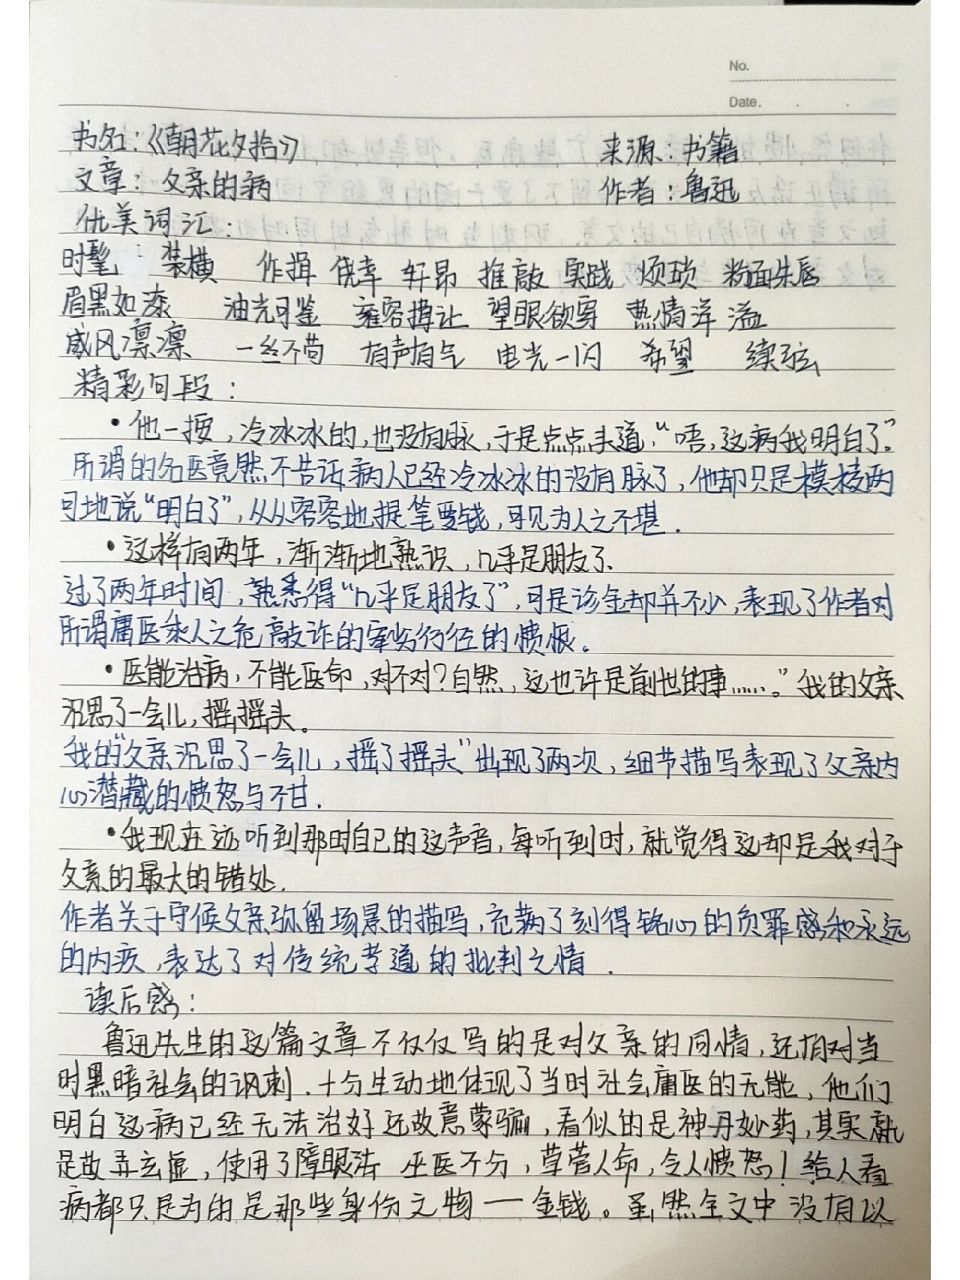 No.
Date.
书名:《朝花夕拾》 来源:书籍
文章:父亲的病 作者:鲁迅
优美词汇:
时髦 装横 作揖 侥幸 轩昂 推敲 实践 烦琐 粉面朱唇
眉黑如漆 油光可鉴 雍容揖让 望眼欲穿 热情洋溢
威风凛凛 一丝不苟 有声有气 电光一闪 希望 续弦
精彩句段:
•他一按,冷冰冰的,也没有脉,于是点点头道,“唔,这病我明白了。”
所谓的名医竟然不告诉病人已经冷冰冰的没有脉了,他却只是模棱两
可地说“明白了”,从从容容地提笔要钱,可见为人之不堪.
•这样有两年,渐渐地熟识,几乎是朋友了.
过了两年时间,熟悉得“几乎是朋友了”,可是诊金却并不少,表现了作者对
所谓庸医乘人之危敲诈的卑劣行径的愤恨。
•医能治病,不能医命,对不对?自然,这也许是前世的事……。”我的父亲
沉思了一会儿,摇摇头。
我的“父亲沉思了一会儿,摇了摇头”出现了两次,细节描写表现了父亲内
心潜藏的愤怒与不甘.
•我现在还听到那时自己的这声音,每听到时,就觉得这却是我对于
父亲的最大的错处.
作者关于守候父亲弥留场景的描写,充满了刻得铭心的负罪感和永远
的内疚,表达了对传统孝道的批判之情.
读后感:
鲁迅先生的这篇文章不仅仅写的是对父亲的同情,还有对当
时黑暗社会的讽刺.十分生动地体现了当时社会庸医的无能,他们
明白这病已经无法治好还故意蒙骗,看似的是神丹妙药,其实就
是故弄玄虚,使用了障眼法 巫医不分,草菅人命,令人愤怒!给人看
病都只是为的是那些身份之物——金钱。虽然全文中没有以